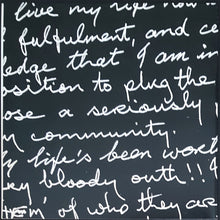 live my life now
fulfulment, and ce
ledge that I am in
position to plug the
ose a seriously
community.
life's been work
bloody outh!!!
of who they are